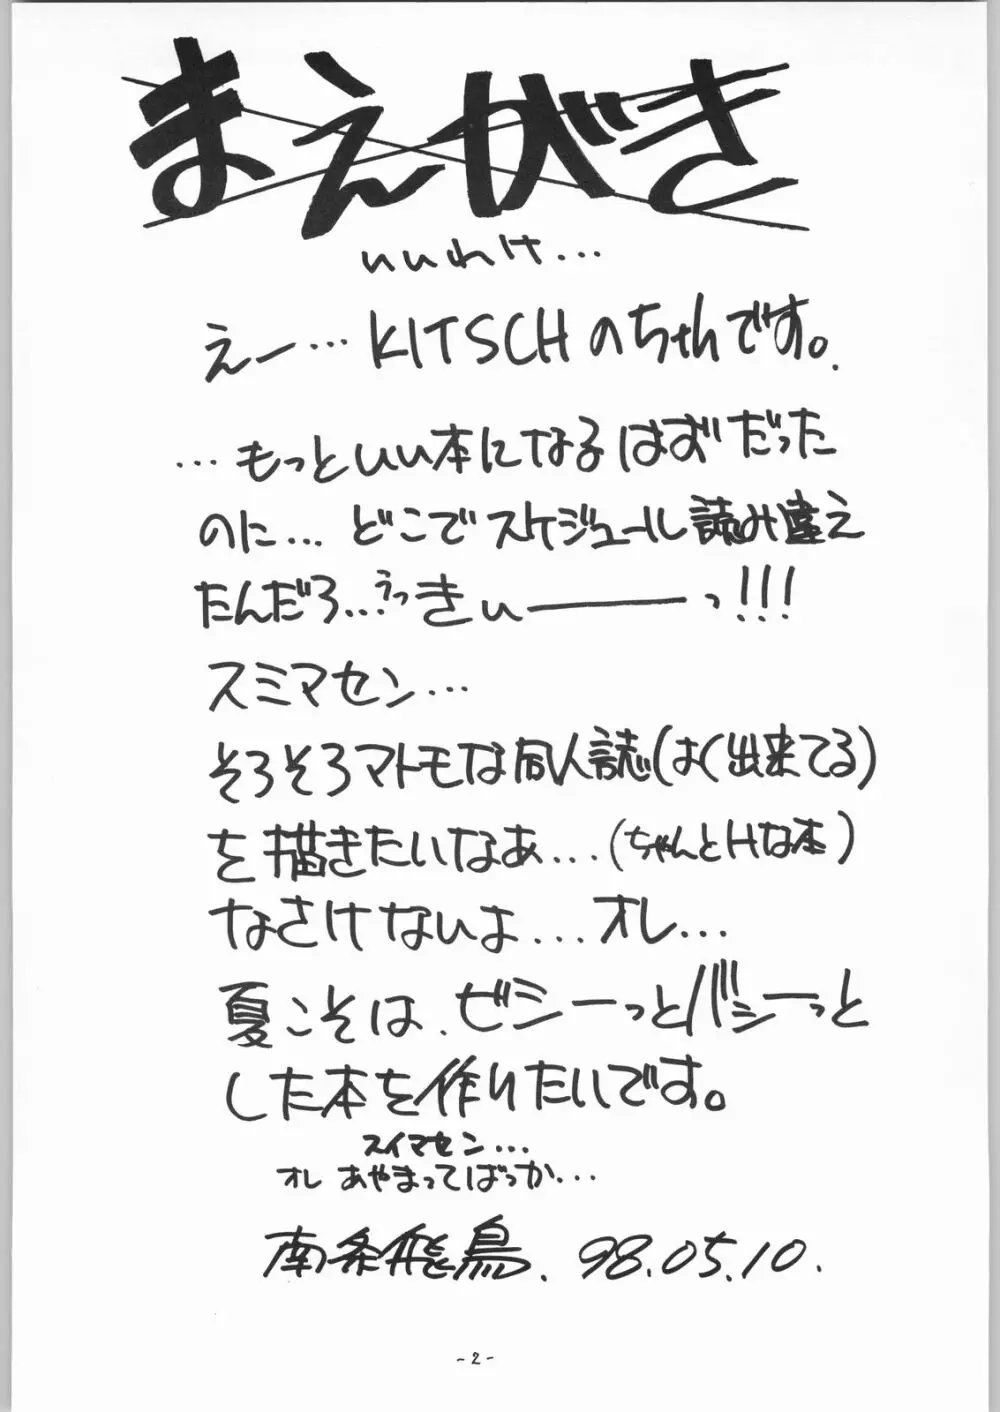 まえがき
いいわけ...
えー… KITSCHのちゃんです。
…もっといい本になるはずだった
のに… どこでスケジュール読み違え
たんだろ…えっきぃーーっ!!!
スミマセン…
そろそろマトモな同人誌(はく出来てる)
を描きたいなあ…(ちゃんとHな本)
なさけないよ…オレ…
夏こそは、ビシーっとバシーっと
した本を作りたいです。
スイマセン…
オレ あやまってばっか…
南条飛鳥. 98.05.10.
-2-